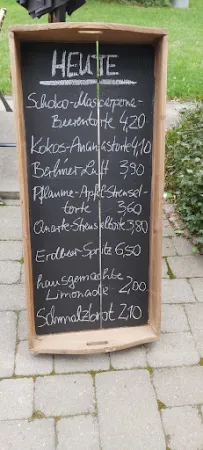 HEUTE
Schoko-Mascarpone-
Beerentorte 4,20
Kokos-Ananastorte 4,10
Berliner Luft 3,90
Pflaume-Apfel-Streusel-
torte 3,60
Quark-Streuseltorte 3,80
Erdbeer-Spritz 6,50
hausgemachte
Limonade 2,00
Schmalzbrot 2,10